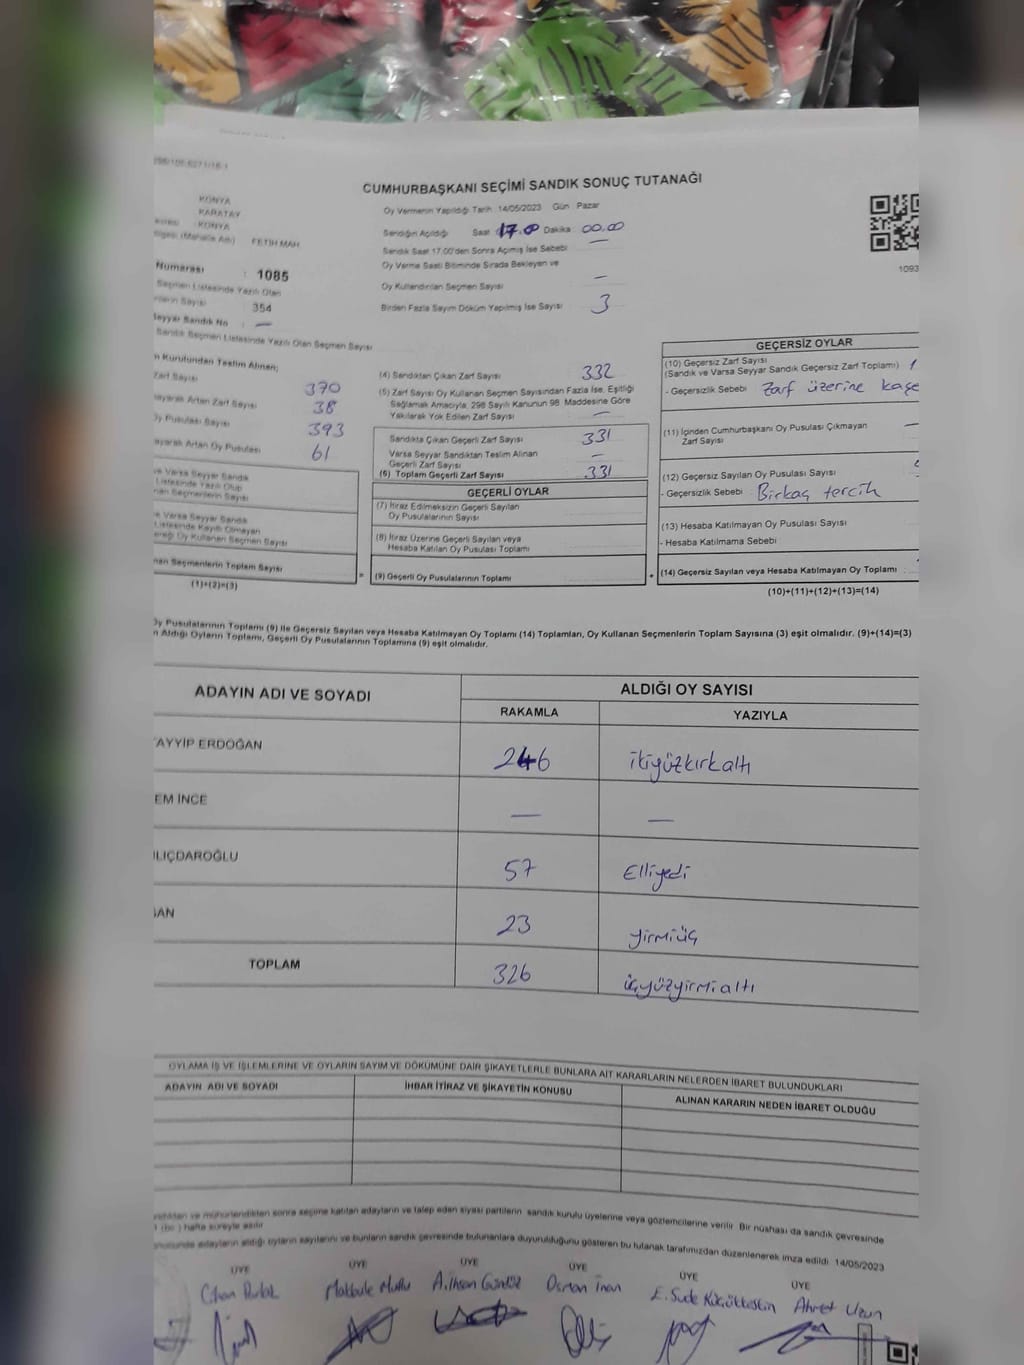 CUMHURBAŞKANI SEÇİMİ SANDIK SONUÇ TUTANAĞI
KONYA
KARATAY
KONYA
(Mahalle Adı) FETİH MAH
Numarası : 1085
Seçmen Listesinde Yazılı Olan
Sayısı 354
Seyyar Sandık No : —
Sandık Seçmen Listesinde Yazılı Olan Seçmen Sayısı
Oy Vermenin Yapıldığı Tarih :14/05/2023 Gün Pazar
Sandığın Açıldığı Saat 17.00 Dakika 00.00
Sandık Saat 17:00'den Sonra Açılmış İse Sebebi —
Oy Verme Saati Bitiminde Sırada Bekleyen ve
Oy Kullandırılan Seçmen Sayısı —
Birden Fazla Sayım Döküm Yapılmış İse Sayısı 3
1093
Kurulundan Teslim Alınan;
Zarf Sayısı 370
Artan Zarf Sayısı 38
Oy Pusulası Sayısı 393
Artan Oy Pusulası 61
ve Varsa Seyyar Sandık
Listesinde Yazılı Olup
Seçmenlerin Sayısı
ve Varsa Seyyar Sandık
Listesinde Kayıtlı Olmayan
Oy Kullanan Seçmen Sayısı
Seçmenlerin Toplam Sayısı
(1)+(2)=(3)
(4) Sandıktan Çıkan Zarf Sayısı 332
(5) Zarf Sayısı Oy Kullanan Seçmen Sayısından Fazla İse, Eşitliği
Sağlamak Amacıyla, 298 Sayılı Kanunun 98. Maddesine Göre
Yakılarak Yok Edilen Zarf Sayısı —
Sandıkta Çıkan Geçerli Zarf Sayısı 331
Varsa Seyyar Sandıktan Teslim Alınan
Geçerli Zarf Sayısı —
(6) Toplam Geçerli Zarf Sayısı 331
GEÇERLİ OYLAR
(7) İtiraz Edilmeksizin Geçerli Sayılan
Oy Pusulalarının Sayısı
(8) İtiraz Üzerine Geçerli Sayılan veya
Hesaba Katılan Oy Pusulası Toplamı
= (9) Geçerli Oy Pusulalarının Toplamı
GEÇERSİZ OYLAR
(10) Geçersiz Zarf Sayısı
(Sandık ve Varsa Seyyar Sandık Geçersiz Zarf Toplamı) 1
- Geçersizlik Sebebi Zarf üzerine kaşe
(11) İçinden Cumhurbaşkanı Oy Pusulası Çıkmayan —
Zarf Sayısı
(12) Geçersiz Sayılan Oy Pusulası Sayısı
- Geçersizlik Sebebi Birkaç tercih
(13) Hesaba Katılmayan Oy Pusulası Sayısı
- Hesaba Katılmama Sebebi
+ (14) Geçersiz Sayılan veya Hesaba Katılmayan Oy Toplamı
(10)+(11)+(12)+(13)=(14)
Oy Pusulalarının Toplamı (9) ile Geçersiz Sayılan veya Hesaba Katılmayan Oy Toplamı (14) Toplamları, Oy Kullanan Seçmenlerin Toplam Sayısına (3) eşit olmalıdır. (9)+(14)=(3)
Aldığı Oyların Toplamı, Geçerli Oy Pusulalarının Toplamına (9) eşit olmalıdır.
ADAYIN ADI VE SOYADI ALDIĞI OY SAYISI
RAKAMLA YAZIYLA
AYYİP ERDOĞAN 246 ikiyüzkırkaltı
EM İNCE — —
ILIÇDAROĞLU 57 Elliyedi
ĞAN 23 yirmiüç
TOPLAM 326 üçyüzyirmialtı
OYLAMA İŞ VE İŞLEMLERİNE VE OYLARIN SAYIM VE DÖKÜMÜNE DAİR ŞİKAYETLERLE BUNLARA AİT KARARLARIN NELERDEN İBARET BULUNDUKLARI
ADAYIN ADI VE SOYADI İHBAR İTİRAZ VE ŞİKAYETİN KONUSU ALINAN KARARIN NEDEN İBARET OLDUĞU
ve mühürlendikten sonra seçime katılan adayların ve talep eden siyasi partilerin sandık kurulu üyelerine veya gözlemcilerine verilir. Bir nüshası da sandık çevresinde
1 (bir) hafta süreyle asılır.
adayların aldığı oyların sayılarını ve bunların sandık çevresinde bulunanlara duyurulduğunu gösteren bu tutanak tarafımızdan düzenlenerek imza edildi. 14/05/2023
ÜYE ÜYE ÜYE ÜYE ÜYE ÜYE
Makbule Mutlu A.İhsan Osman İnan E. Sude Küçükkeskin Ahmet Uzun